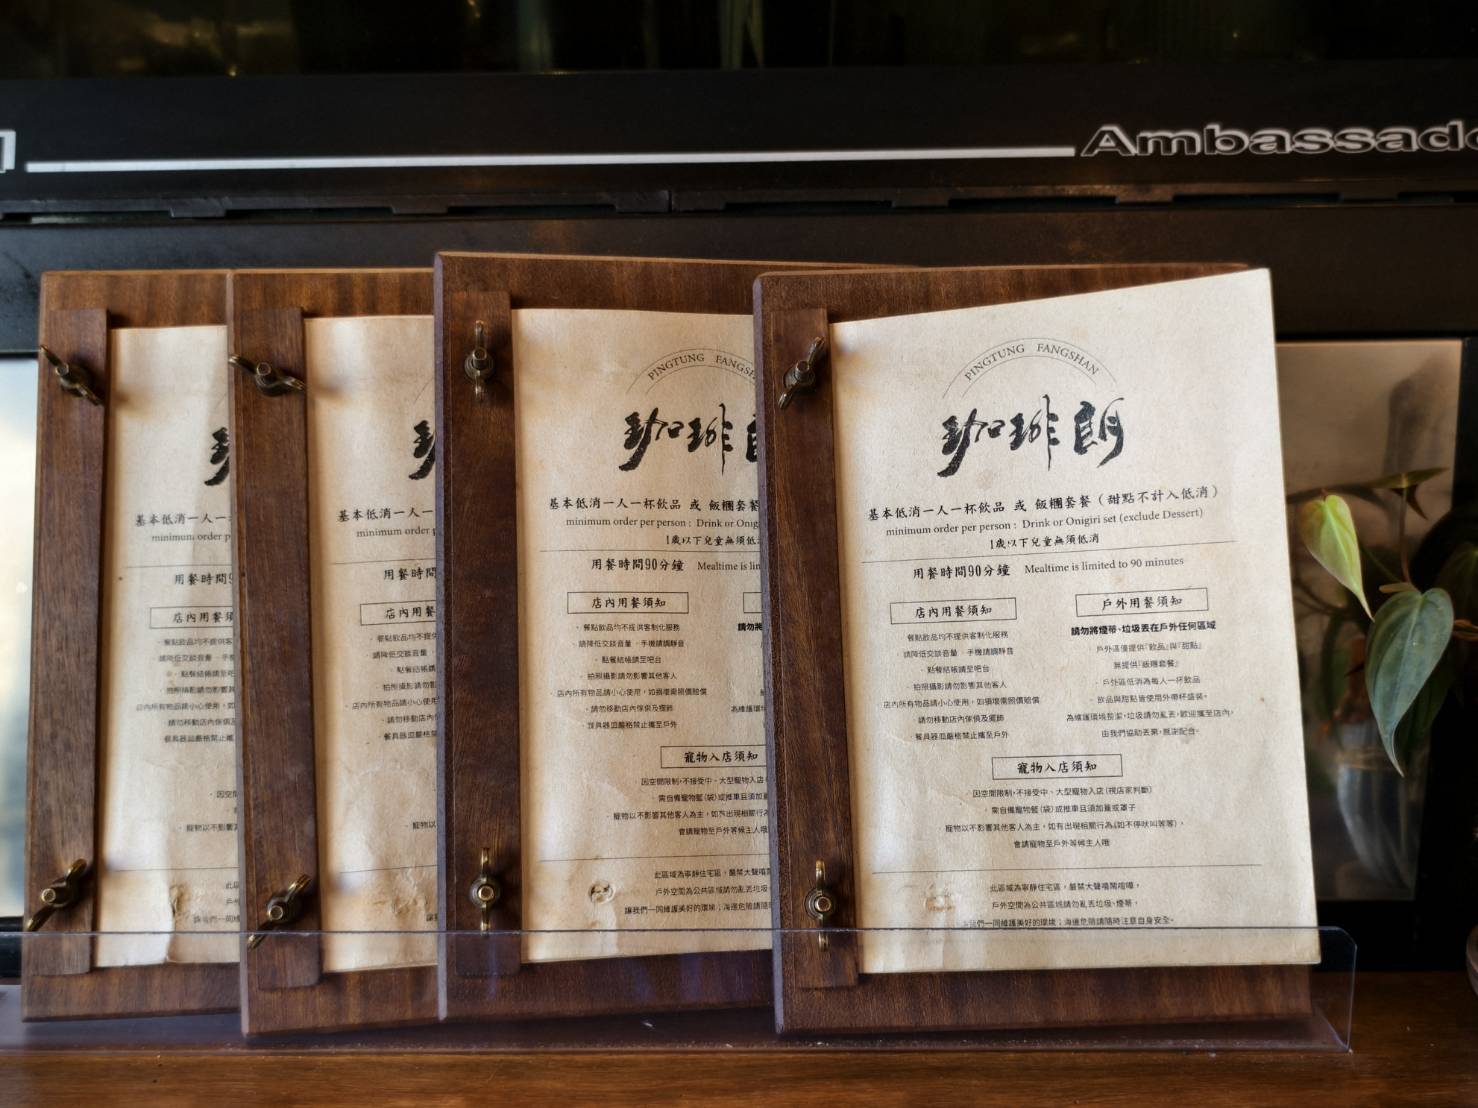 Ambassado
PINGTUNG FANGSHAN
珈琲朗
基本低消一人一杯飲品 或 飯糰套餐（甜點不計入低消）
minimum order per person : Drink or Onigiri set (exclude Dessert)
1歲以下兒童無須低消
用餐時間90分鐘 Mealtime is limited to 90 minutes
店內用餐須知
· 餐點飲品均不提供客制化服務
· 請降低交談音量 · 手機請調靜音
· 點餐結帳請至吧台
· 拍照攝影請勿影響其他客人
· 店內所有物品請小心使用，如損壞需照價賠償
· 請勿移動店內傢俱及擺飾
· 餐具器皿嚴格禁止攜至戶外
戶外用餐須知
請勿將煙蒂、垃圾丟在戶外任何區域
· 戶外區僅提供『飲品』與『甜點』
無提供『飯糰套餐』
· 戶外區低消為每人一杯飲品
· 飲品與甜點皆使用外帶杯盛裝。
為維護環境整潔，垃圾請勿亂丟，歡迎攜至店內，
由我們協助丟棄，感謝配合。
寵物入店須知
· 因空間限制，不接受中、大型寵物入店（視店家判斷）
· 需自備寵物籃（袋）或推車且須加蓋或罩子
· 寵物以不影響其他客人為主，如有出現相關行為（如不停吠叫等等），
會請寵物至戶外等候主人哦
此區域為寧靜住宅區，嚴禁大聲嘻鬧喧嘩，
戶外空間為公共區域請勿亂丟垃圾、煙蒂，
讓我們一同維護美好的環境；海邊危險請隨時注意自身安全。